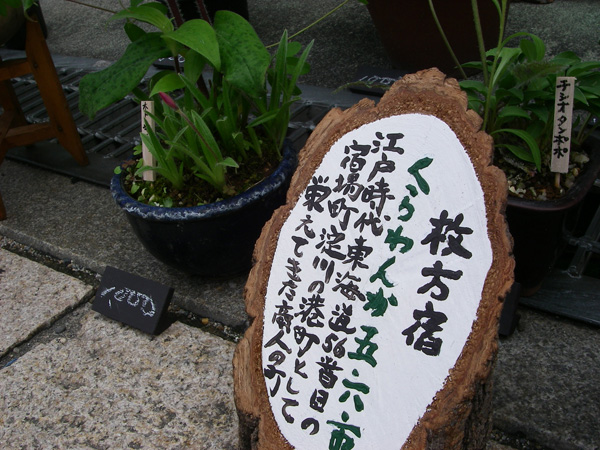 枚方宿
くらわんか五六市
江戸時代東海道56番目の
宿場町 淀川の港町として
栄えてきた商人の町
チシオタンポポ